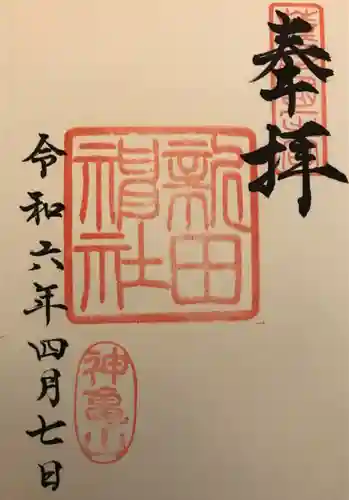 奉拝
新田
神社
神亀山
令和六年四月七日